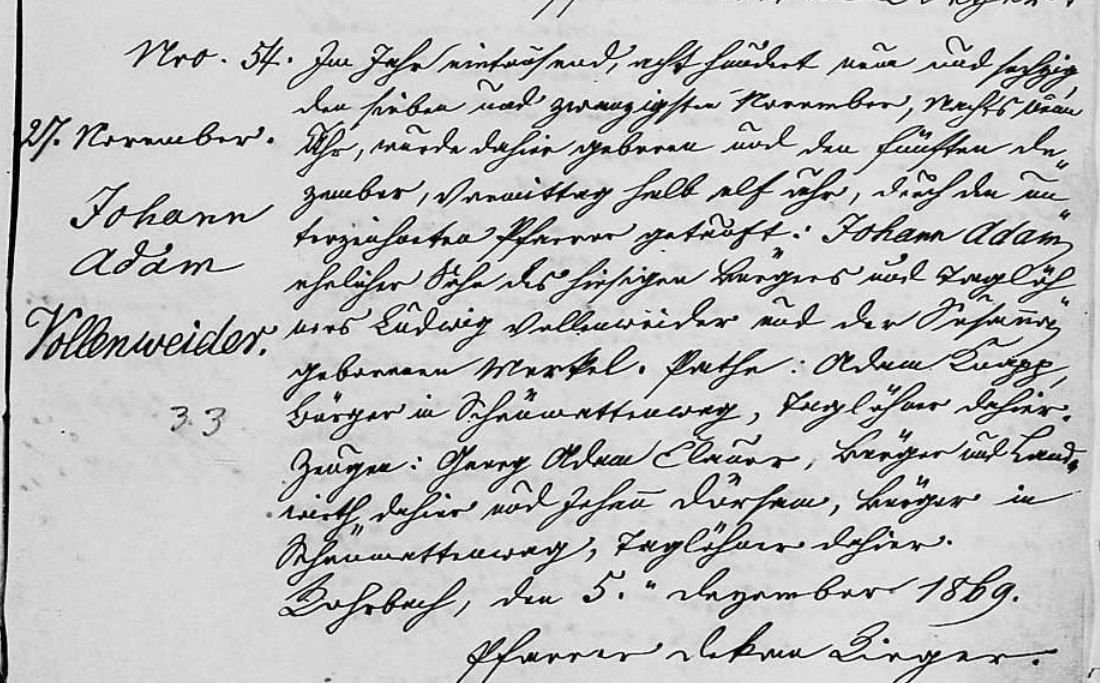 Nro. 54. Im Jahr eintausend, acht hundert neun und sechzig,
den sieben und zwanzigsten November, Nachts neun
27. November.
Uhr, wurde dahier geboren und den fünften De„
Johann
zember, Vormittag halb elf Uhr, durch den un„
terzeichneten Pfarrer getauft: Johann Adam,
Adam
ehelicher Sohn des hiesigen Bürgers und Taglöh„
Vollenweider.
ners Ludwig Vollenweider und der Susanna,
geborenen Merkel. Pathe: Adam Knapp,
33
Bürger in Schönmattenwag, Taglöhner dahier.
Zeugen: Georg Adam Clauer, Bürger und Land„
wirth dahier und Johann Dörsam, Bürger in
Schönmattenwag, Taglöhner dahier.
Rohrbach, den 5. Dezember 1869.
Pfarrer Dekan Rieger.